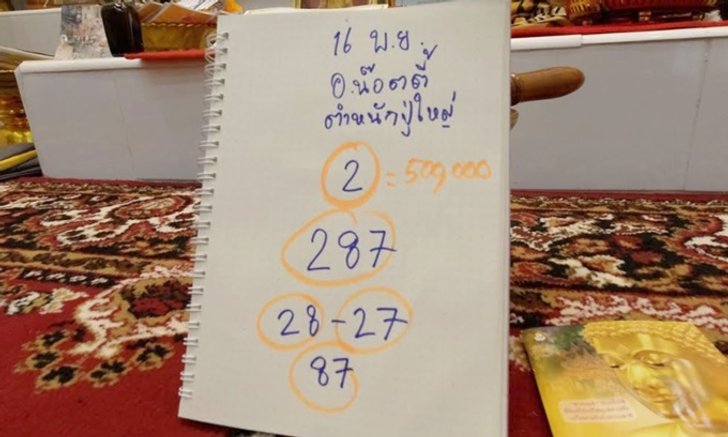 16 พ.ย.
อ.น๊อตตี้
ตำหนักปู่ใหญ่
2 = 500,000
287
28-27
87